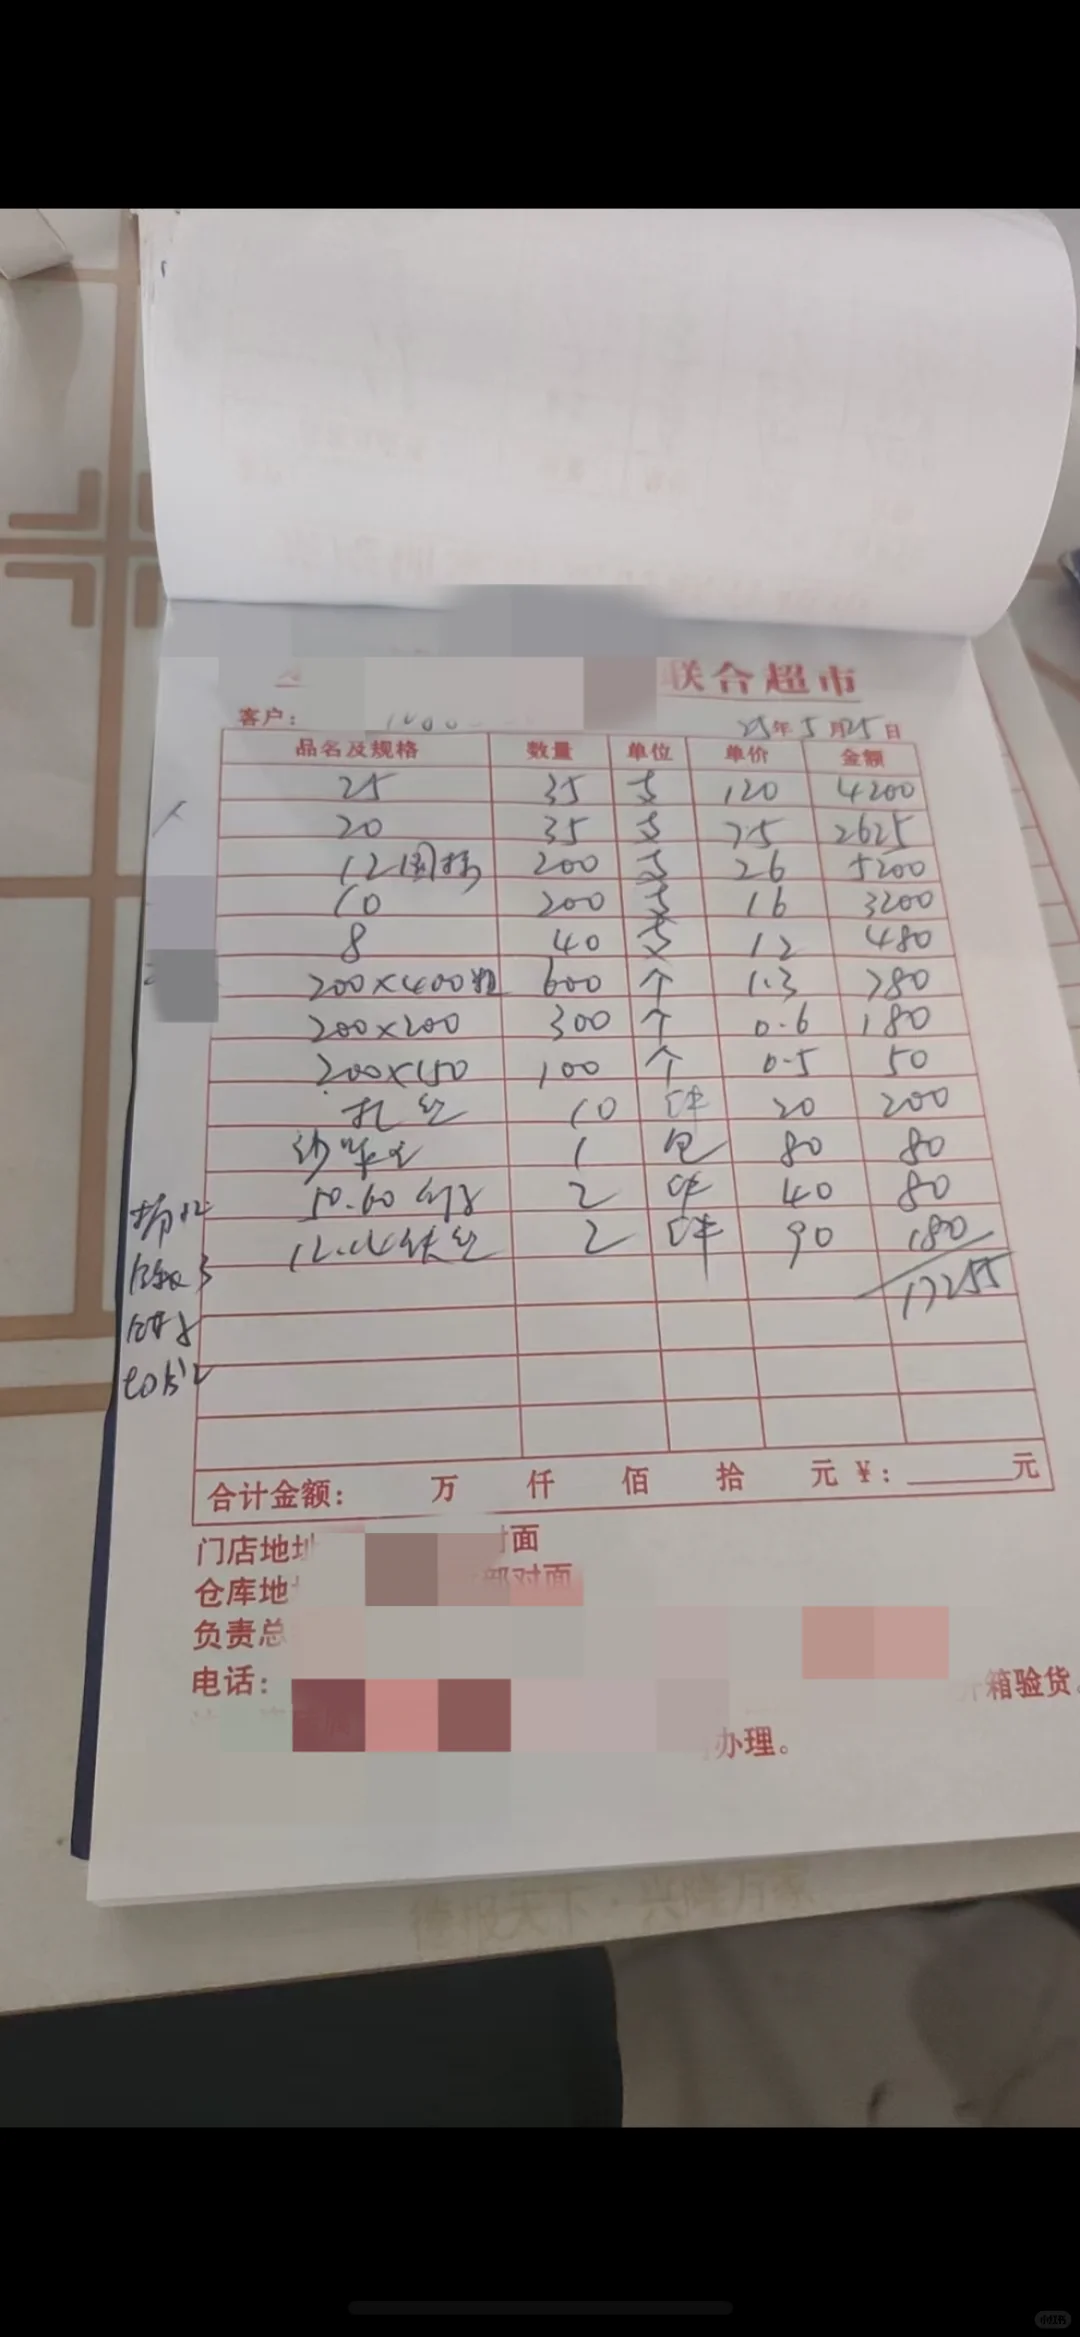 联合超市
客户: 25年5月25日
品名及规格 数量 单位 单价 金额
25 35 支 120 4200
20 35 支 75 2625
12国标 200 支 26 5200
10 200 支 16 3200
8 40 支 12 480
200×400粗 600 个 1.3 780
200×200 300 个 0.6 180
200×150 100 个 0.5 50
扎丝 10 件 20 200
1 包 80 80
50.60钉子 2 件 40 80
铁丝 2 件 90 180
17255
合计金额: 万 仟 佰 拾 元 ¥: 元
门店地址 对面
仓库地 部对面
负责总
电话: 开箱验货。
办理。
德报天下·兴隆万家